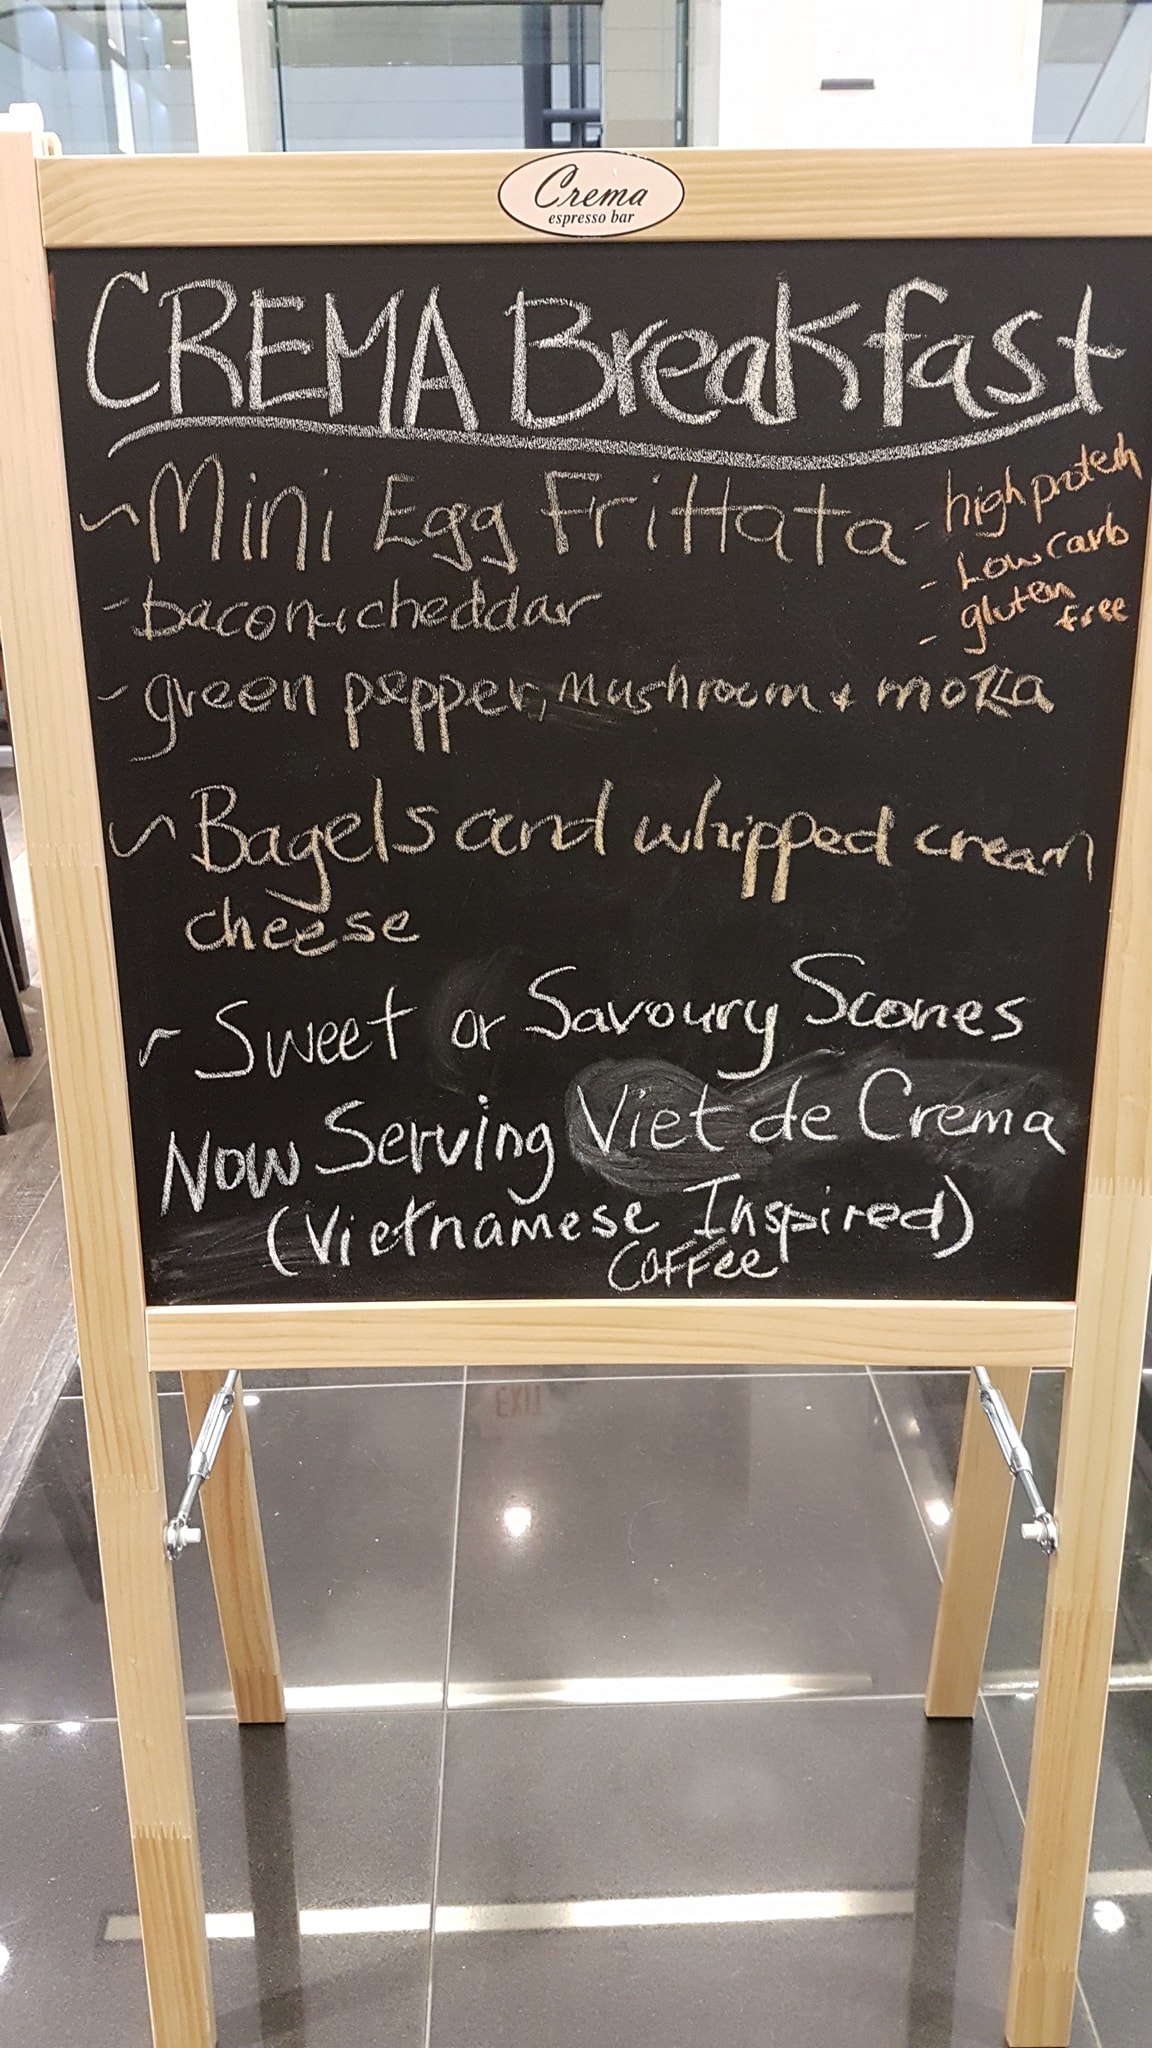 Crema
espresso bar
CREMA Breakfast
~ Mini Egg Frittata
- high protein
- Low carb
- gluten free
- bacon + cheddar
- green pepper, mushroom + mozza
~ Bagels and whipped cream
cheese
~ Sweet or Savoury Scones
Now Serving Viet de Crema
(Vietnamese Inspired)
Coffee
EXIT